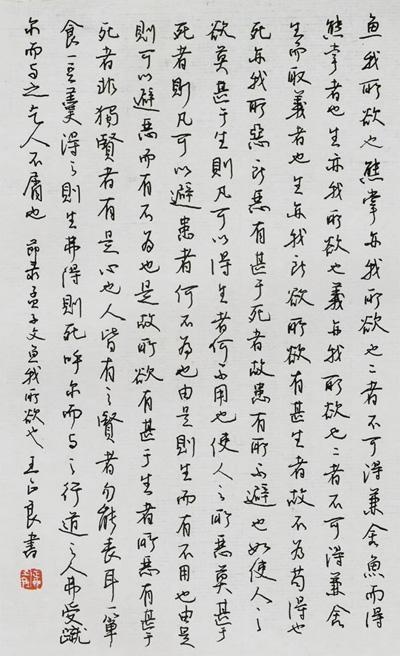 鱼我所欲也熊掌亦我所欲也二者不可得兼舍鱼而得
熊掌者也生亦我所欲也義亦我所欲也二者不可得兼舍
生而取義者也生亦我所欲所欲有甚生者故不为苟得也
死亦我所惡所惡有甚于死者故患有所不避也如使人之
欲莫甚于生則凡可以得生者何不用也使人之所惡莫甚于
死者則凡可以避患者何不为也由是則生而有不用也由是
則可以避惡而有不为也是故所欲有甚于生者所惡有甚于
死者非獨賢者有是心也人皆有之賢者勿能丧耳一箪
食一豆羹得之則生弗得則死呼尔而与之行道之人弗受蹴
尔而与之乞人不屑也 節录孟子文鱼我所欲也 王正良書